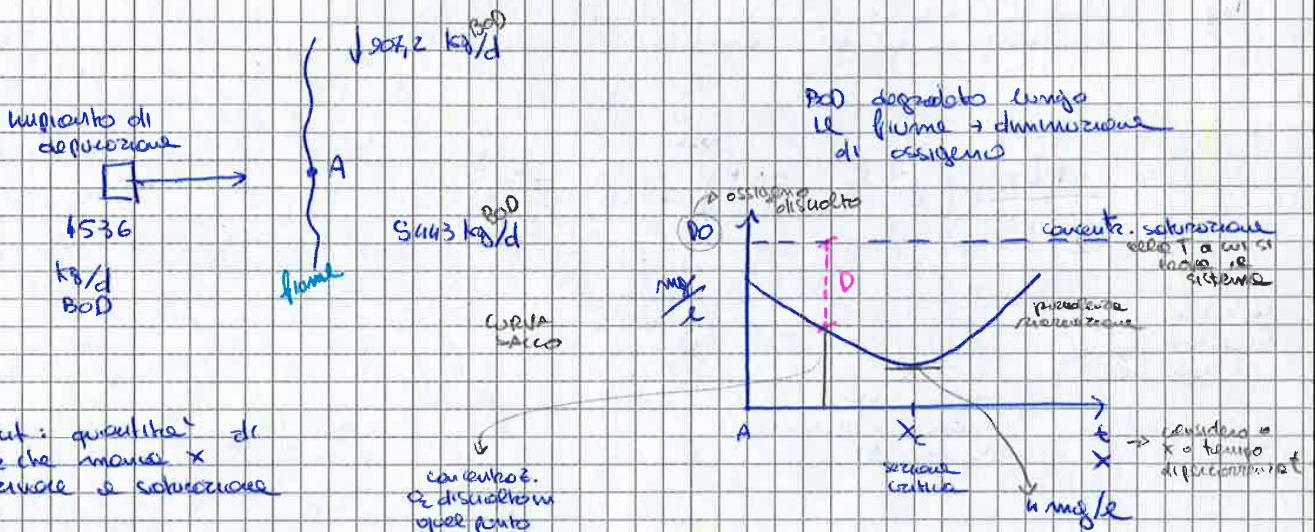 ↓ 907,2 kg/d BOD
impianto di
depurazione
A
4536
kg/d
BOD
5443 kg/d BOD
fiume
BOD degradato lungo
il fiume → diminuzione
di ossigeno
ossigeno
disciolto
DO
mg/l
D
concentr. saturazione
alla T a cui si
trova il
sistema
prevalenza
riareazione
CURVA
SACCO
A
Xc
sezione
critica
t
X
→ considero o
x o tempo
4 mg/l
concentraz.
O2 disciolto in
quel punto
: quantità di
che manca x
a saturazione